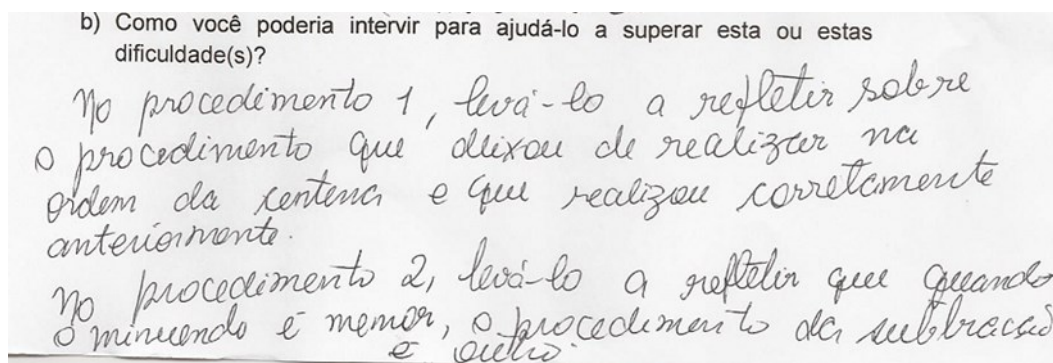 b) Como você poderia intervir para ajudá-lo a superar esta ou estas
dificuldade(s)?
No procedimento 1, levá-lo a refletir sobre
o procedimento que deixou de realizar na
ordem da centena e que realizou corretamente
anteriormente.
No procedimento 2, levá-lo a refletir que quando
o minuendo é menor, o procedimento da subtração
é outro.